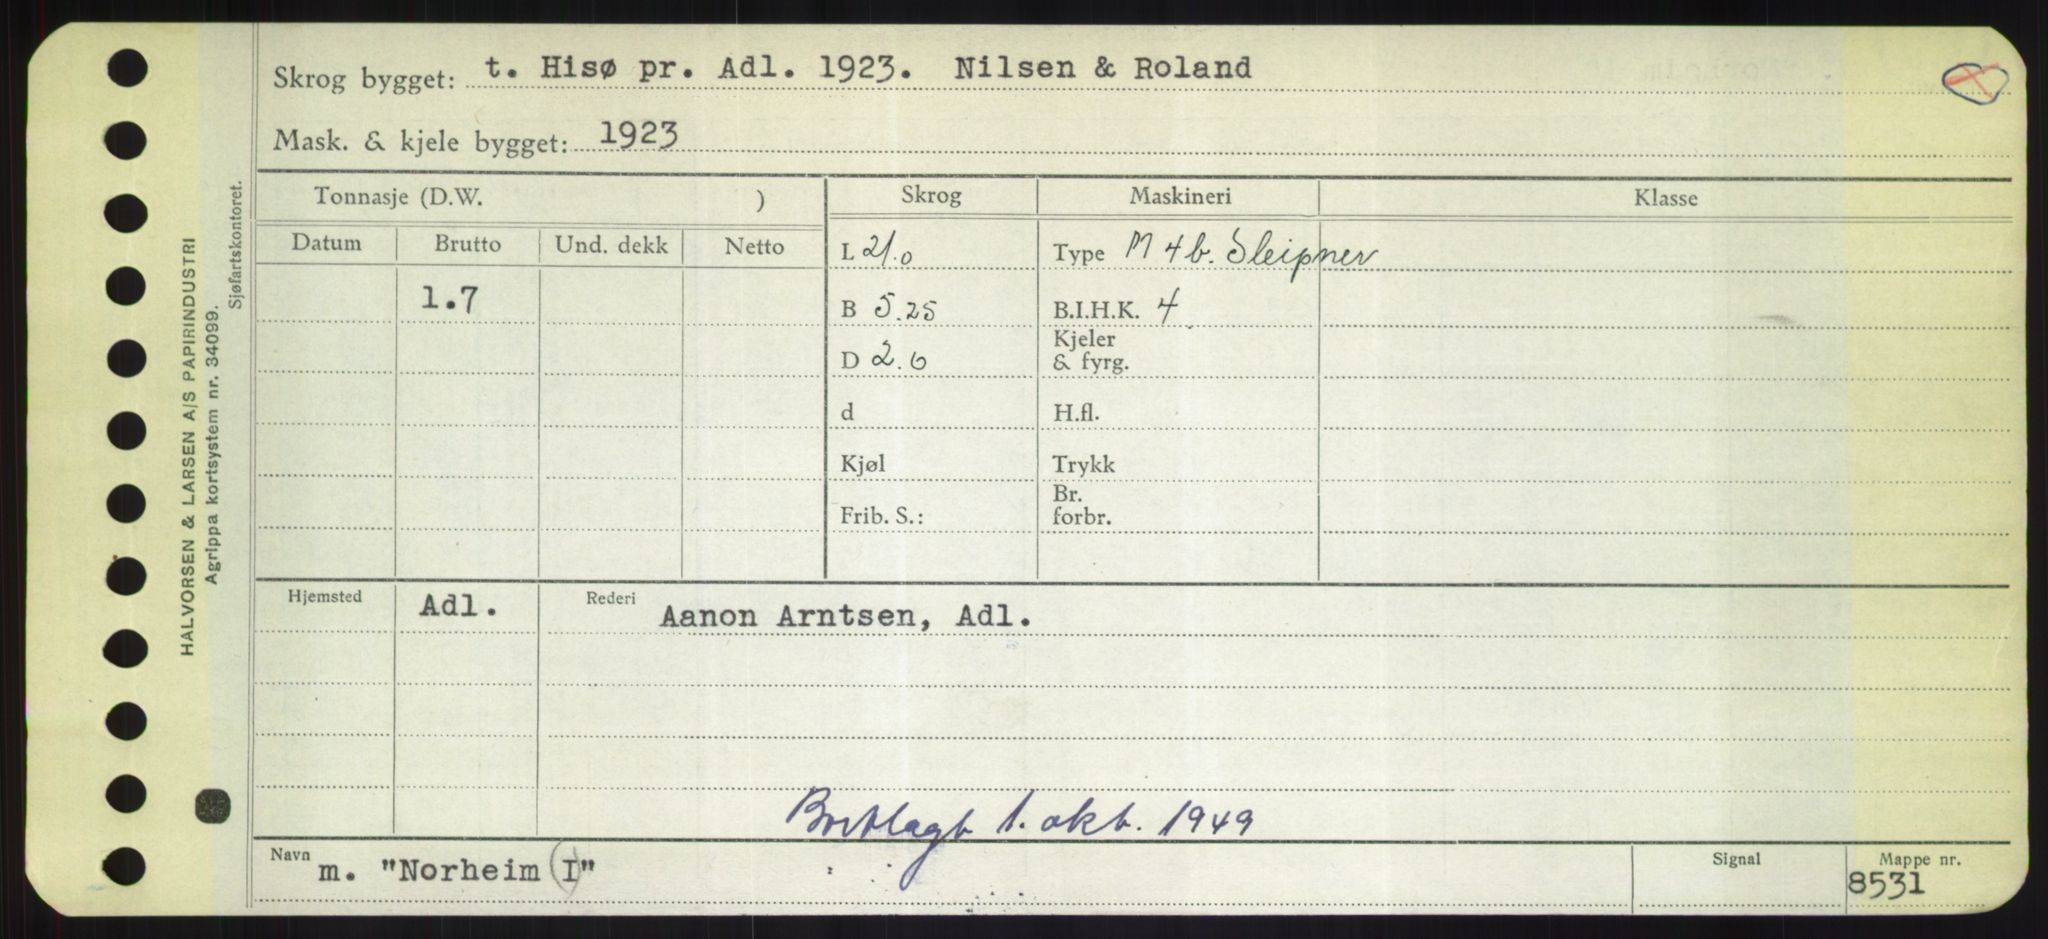 Skrog bygget: t. Hisø pr. Adl. 1923. Nilsen & Roland
Mask. & kjele bygget: 1923
Tonnasje (D.W. ) Skrog Maskineri Klasse
Datum Brutto Und. dekk Netto
L 21.0 Type M 4 b. Sleipner
1.7 B 5.25 B.I.H.K. 4
D 2.0 Kjeler & fyrg.
d H.fl.
Kjøl Trykk
Frib. S.: Br. forbr.
Hjemsted Adl. Rederi Aanon Arntsen, Adl.
Bortlagt 1. okt. 1949
Navn m. "Norheim (I)" Signal Mappe nr. 8531
HALVORSEN & LARSEN A/S PAPIRINDUSTRI
Agrippa kortsystem nr. 34099.
Sjøfartskontoret.